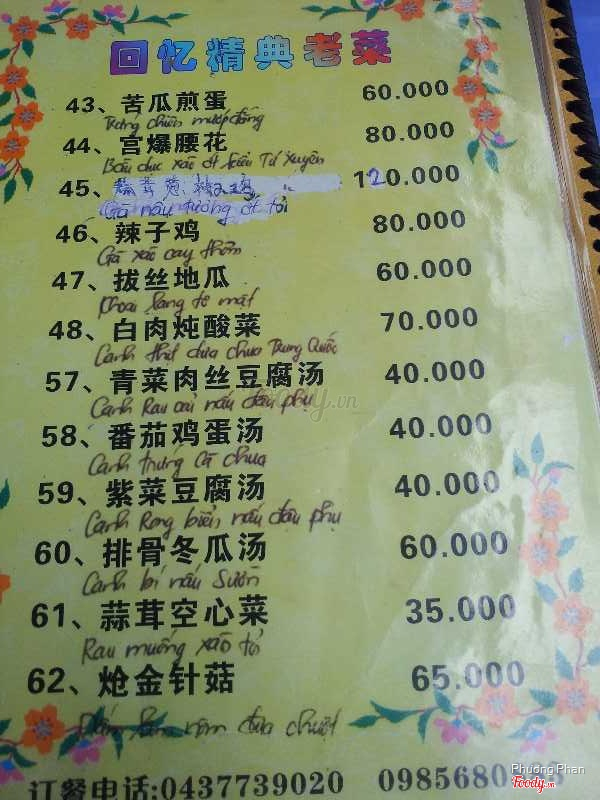 回忆精典老菜
43、苦瓜煎蛋 60.000
Trứng chiên mướp đắng
44、宫爆腰花 80.000
Bầu dục xào ớt kiểu Tứ Xuyên
45、 120.000
Gà nấu tương ớt tỏi
46、辣子鸡 80.000
Gà xào cay thơm
47、拔丝地瓜 60.000
Khoai lang tơ mật
48、白肉炖酸菜 70.000
Canh thịt dưa chua Trung Quốc
57、青菜肉丝豆腐汤 40.000
Canh Rau cải nấu đậu phụ
58、番茄鸡蛋汤 40.000
Canh trứng cà chua
59、紫菜豆腐汤 40.000
Canh Rong biển nấu đậu phụ
60、排骨冬瓜汤 60.000
Canh bí nấu sườn
61、蒜茸空心菜 35.000
Rau muống xào tỏi
62、炝金针菇 65.000
nấm dưa chuột
订餐电话:0437739020
Phuong Phan
Foody.vn